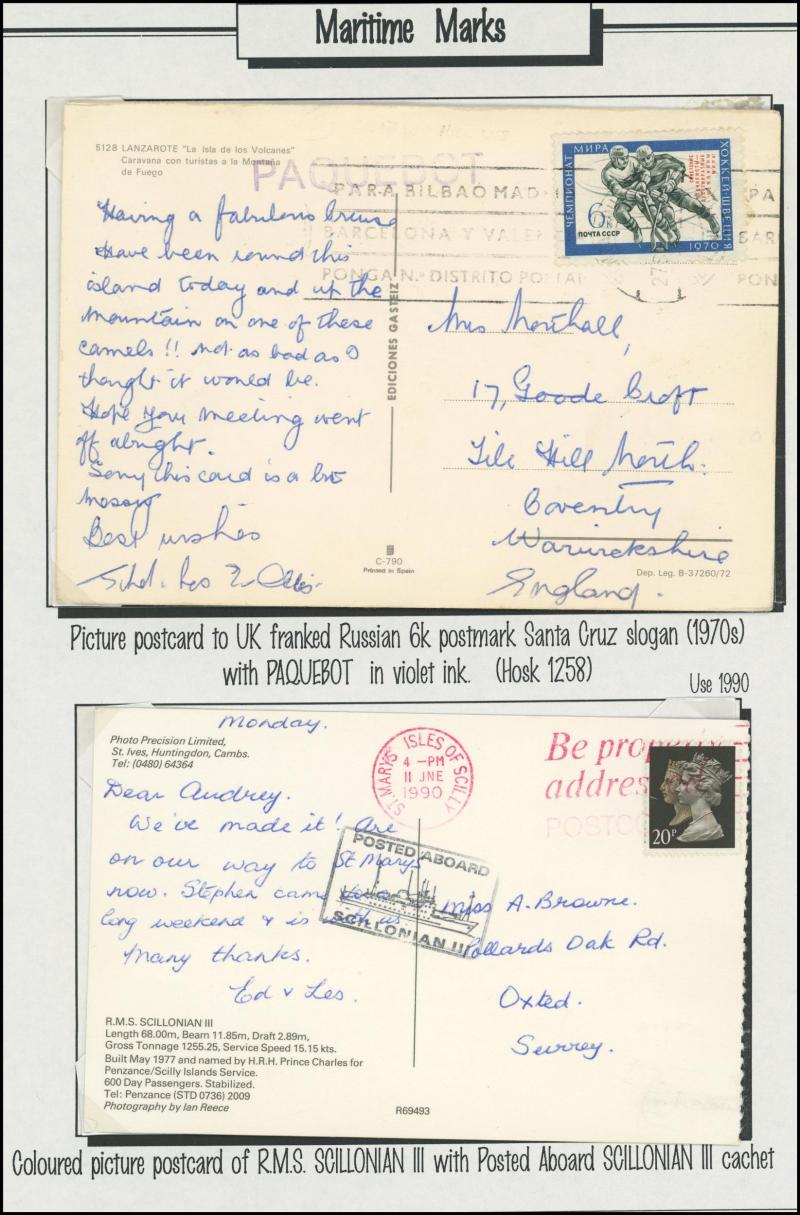 Maritime Marks
5128 LANZAROTE "La Isla de los Volcanes"
Caravana con turistas a la Montaña
de Fuego
PAQUEBOT
PARA BILBAO MAD
PA
BARCELONA Y VALEN
BAR
PONGA N.º DISTRITO POSTAL
PONG
ЧЕМПИОНАТ МИРА
ХОККЕЙ-ШВЕЦИЯ
1970
6к
ПОЧТА СССР
27
Having a fabulous cruise
Have been round this
island today and up the
mountain on one of these
camels!! not as bad as I
thought it would be.
Hope your meeting went
off alright.
Sorry this card is a bit
messy
Best wishes
EDICIONES GASTEIZ
Mrs Northall,
17, Goode Croft
Tile Hill North.
Coventry
Warwickshire
England.
C-790
Printed in Spain
Dep. Leg. B-37260/72
Picture postcard to UK franked Russian 6k postmark Santa Cruz slogan (1970s)
with PAQUEBOT in violet ink. (Hosk 1258)
Use 1990
Monday.
Photo Precision Limited,
St. Ives, Huntingdon, Cambs.
Tel: (0480) 64364
ST. MARYS ISLES OF SCILLY
4 -PM
11 JNE
1990
Be properly
addressed
POSTCO
20P
Dear Audrey.
We've made it! Are
on our way to St Marys
now. Stephen came for a
long weekend & is with us.
Many thanks.
Ed & Les.
POSTED ABOARD
SCILLONIAN III
Miss A. Browne.
Pollards Oak Rd.
Oxted.
Surrey.
R.M.S. SCILLONIAN III
Length 68.00m, Beam 11.85m, Draft 2.89m,
Gross Tonnage 1255.25, Service Speed 15.15 kts.
Built May 1977 and named by H.R.H. Prince Charles for
Penzance/Scilly Islands Service.
600 Day Passengers. Stabilized.
Tel: Penzance (STD 0736) 2009
Photography by Ian Reece
R69493
Coloured picture postcard of R.M.S. SCILLONIAN III with Posted Aboard SCILLONIAN III cachet